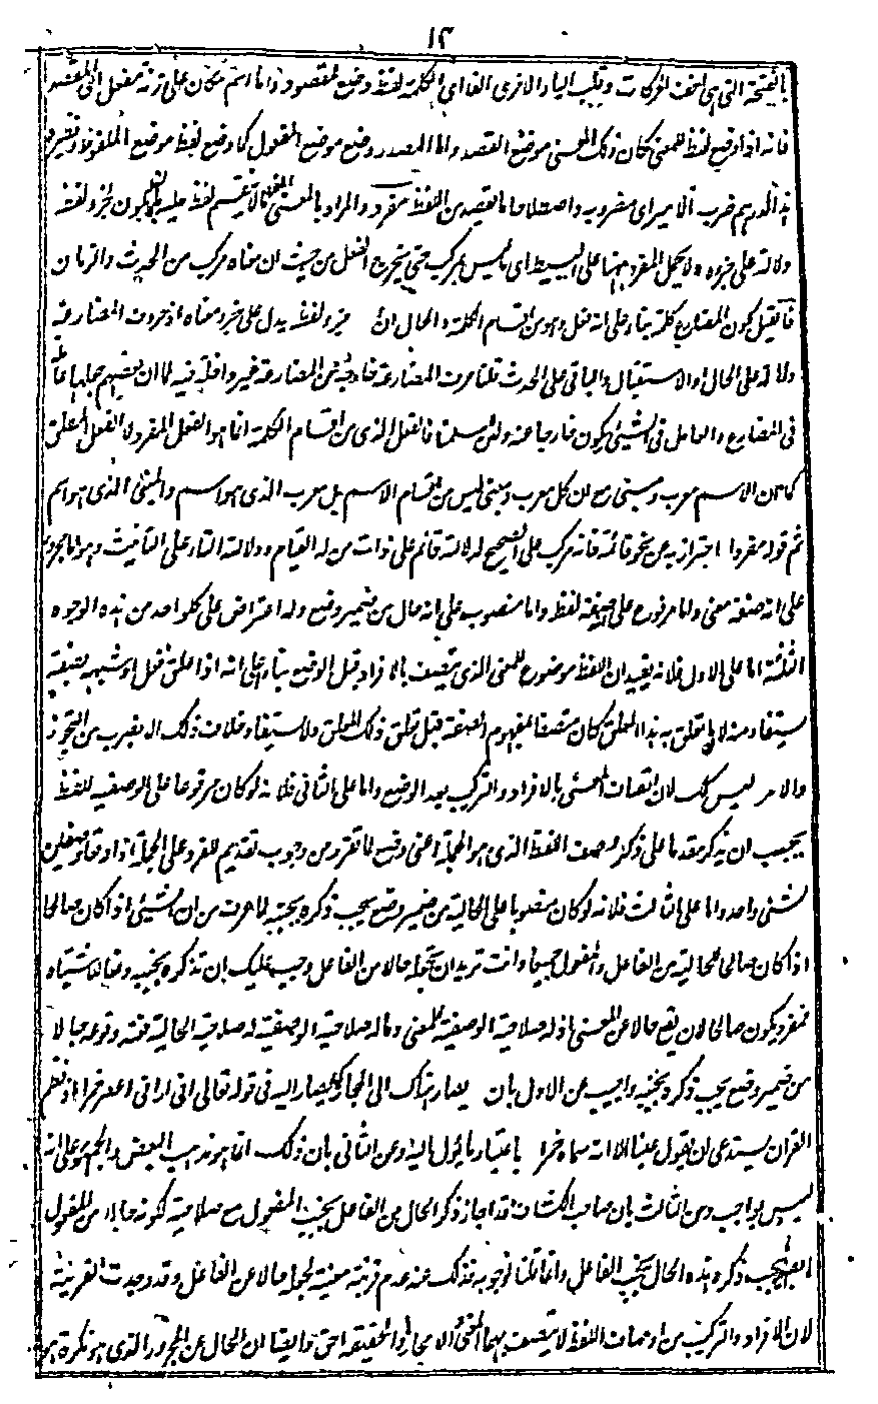 ١٢
بالفتحة التى هى اخف الحركات وقلب الياء الاخرى الفا اى الكلمة لفظ وضع لمقصود واما اسم مكان على زنة مفعل اى المقصد
فانه اذا وضع لفظ لمعنى كان ذلك المعنى موضع القصد واما المصدر وضع موضع المفعول كما وضع لفظ موضع الملفوظ ونظيره
هذا الدرهم ضرب الامير اى مضروبه واصطلاحا ما يقصد من اللفظ مفرد والمراد بالمعنى المفرد ما لا ينقسم لفظ عليه بان يكون لجزء لفظه
دلالة على جزءه ولا يحمل المفرد ههنا على البسيط اى ما ليس بمركب حتى يخرج الفعل من حيث ان معناه مركب من الحدث والزمان
فان قيل كون المضارع كلمة بناء على انه فعل وهو من اقسام الكلمة والحال ان جزء لفظه يدل على جزء معناه اذ حروف المضارعة
دالة على الحال او الاستقبال والباقى على الحدث قلنا حرف المضارعة خارجة من المضارعة غير داخلة فيه لما ان بعضهم جعلها عاملة
فى المضارع والعامل فى الشيئ يكون خارجا عنه ولئن سلمنا فالفعل الذى من اقسام الكلمة انما هو الفعل المفرد لا الفعل المطلق
كما ان الاسم معرب ومبنى مع ان كل معرب ومبنى ليس من اقسام الاسم بل معرب الذى هو اسم والمبنى الذى هو اسم
ثم قوله مفردا احتراز به عن نحو قائمة فانه مركب على الصحيح لدلالة قائم على ذات من له القيام ودلالة التاء على التانيث وهو اما مجرور
على انه صفة معنى واما مرفوع على صفة لفظ واما منصوب على انه حال من ضمير وضع وله اعتراض على كل واحد من هذه الوجوه
الثلثة اما على الاول فلانه يفيد ان اللفظ موضوع للمعنى الذى يتصف بالافراد قبل الوضع بناء على انه اذا علق فعل او شبهه بصفة
يستفاد منه ان ما يتعلق به هذا المعلق كان متصفا بمفهوم الصفة قبل تعلق ذلك المعلق ولا يستفاد خلاف ذلك الا بضرب من التجوز
والامر ليس كك لان اتصاف المعنى بالافراد والتركيب بعد الوضع واما على الثانى فلانه لو كان مرفوعا على الوصفية للفظ
يجب ان يذكر مقدما على ذكر وصف اللفظ الذى هو الجملة اعنى وضع لما تقرر من وجوب تقديم المفرد على الجملة اذا وقعا وصفين
لشئ واحد واما على الثالث فلانه لو كان منصوبا على الحالية من ضمير وضع يجب ذكره بجنبه لما عرفت من ان الشيئ اذا كان صالحا
اذا كان صالحا للحالية من الفاعل والمفعول جميعا وانت تريد ان تجعله حالا من الفاعل وجب عليك ان تذكره بجنبه دفعا للاشتباه
فمفرد يكون صالحا لان يقع حالا عن المعنى اذ له صلاحية الوصفية للمعنى وما له صلاحية الوصفية له صلاحية الحالية فعند وقوعه حالا
من ضمير وضع يجب ذكره بجنبه واجيب عن الاول بان يصار هناك الى المجاز كما يصار اليه فى قوله تعالى انى ارانى اعصر خمرا اذ نظم
القران يستدعى ان يقول عنبا الا انه سماه خمرا باعتبار ما يؤل اليه وعن الثانى بان ذلك انما هو مذهب البعض والجمهور على انه
ليس بواجب وعن الثالث بان صاحب الكشاف قد اجاز ذكر الحال من الفاعل بجنب المفعول مع صلاحية كونه حالا من المفعول
ايضا فيجب ذكره هذه الحال بجنب الفاعل وانما قلنا لوجوبه فذلك عند عدم قرينة معينة لجعله حالا عن الفاعل وقد وجدت القرينة
لان الافراد والتركيب من اوصاف اللفظ لا يتصف بهما المعنى الا مجازا والحقيقة احق وايضا ان الحال عن المجرور الذى هو نكرة